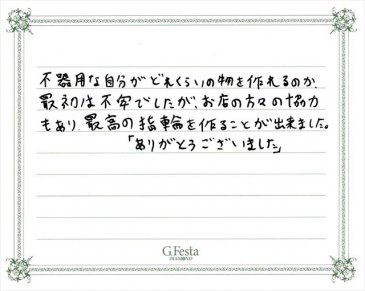 不器用な自分がどれくらいの物を作れるのか、
最初は不安でしたが、お店の方々の協力
もあり、最高の指輪を作ることが出来ました。
「ありがとうございました」
G.Festa
DIAMOND